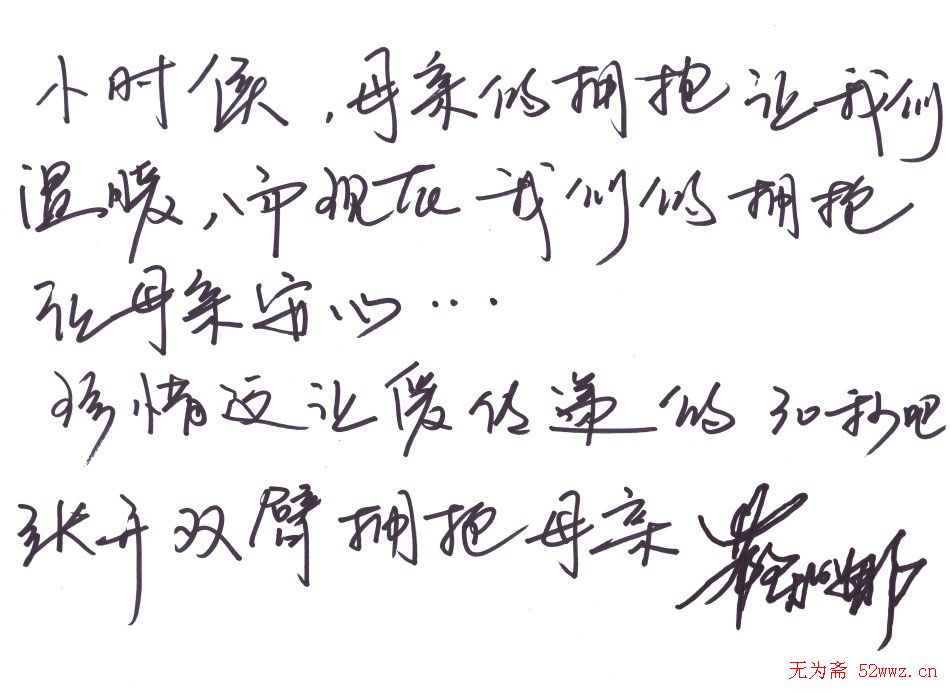 小时候,母亲的拥抱让我们
温暖,而现在我们的拥抱
让母亲安心…
珍惜这让爱传递的30秒吧
张开双臂拥抱母亲
无为斋 52wwz.cn